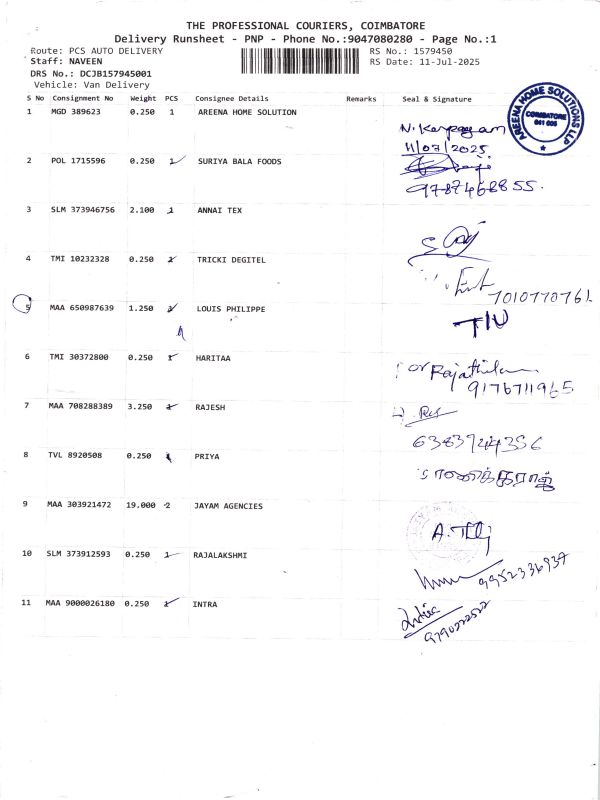 THE PROFESSIONAL COURIERS, COIMBATORE
Delivery Runsheet - PNP - Phone No.:9047080280 - Page No.:1
Route: PCS AUTO DELIVERY
RS No.: 1579450
Staff: NAVEEN
RS Date: 11-Jul-2025
DRS No.: DCJB157945001
Vehicle: Van Delivery
S No Consignment No Weight PCS Consignee Details Remarks Seal & Signature
1 MGD 389623 0.250 1 AREENA HOME SOLUTION
AREENA HOME SOLUTIONS LLP
COIMBATORE
641 005
N. Karpagam
11/07/2025
2 POL 1715596 0.250 1 SURIYA BALA FOODS
9787468855.
3 SLM 373946756 2.100 1 ANNAI TEX
4 TMI 10232328 0.250 1 TRICKI DEGITEL
7010770761
5 MAA 650987639 1.250 LOUIS PHILIPPE
6 TMI 30372800 0.250 1 HARITAA
9176711965
7 MAA 708288389 3.250 1 RAJESH
6383744356
8 TVL 8920508 0.250 1 PRIYA
9 MAA 303921472 19.000 2 JAYAM AGENCIES
10 SLM 373912593 0.250 1 RAJALAKSHMI
9952336937
11 MAA 9000026180 0.250 1 INTRA
9790222522